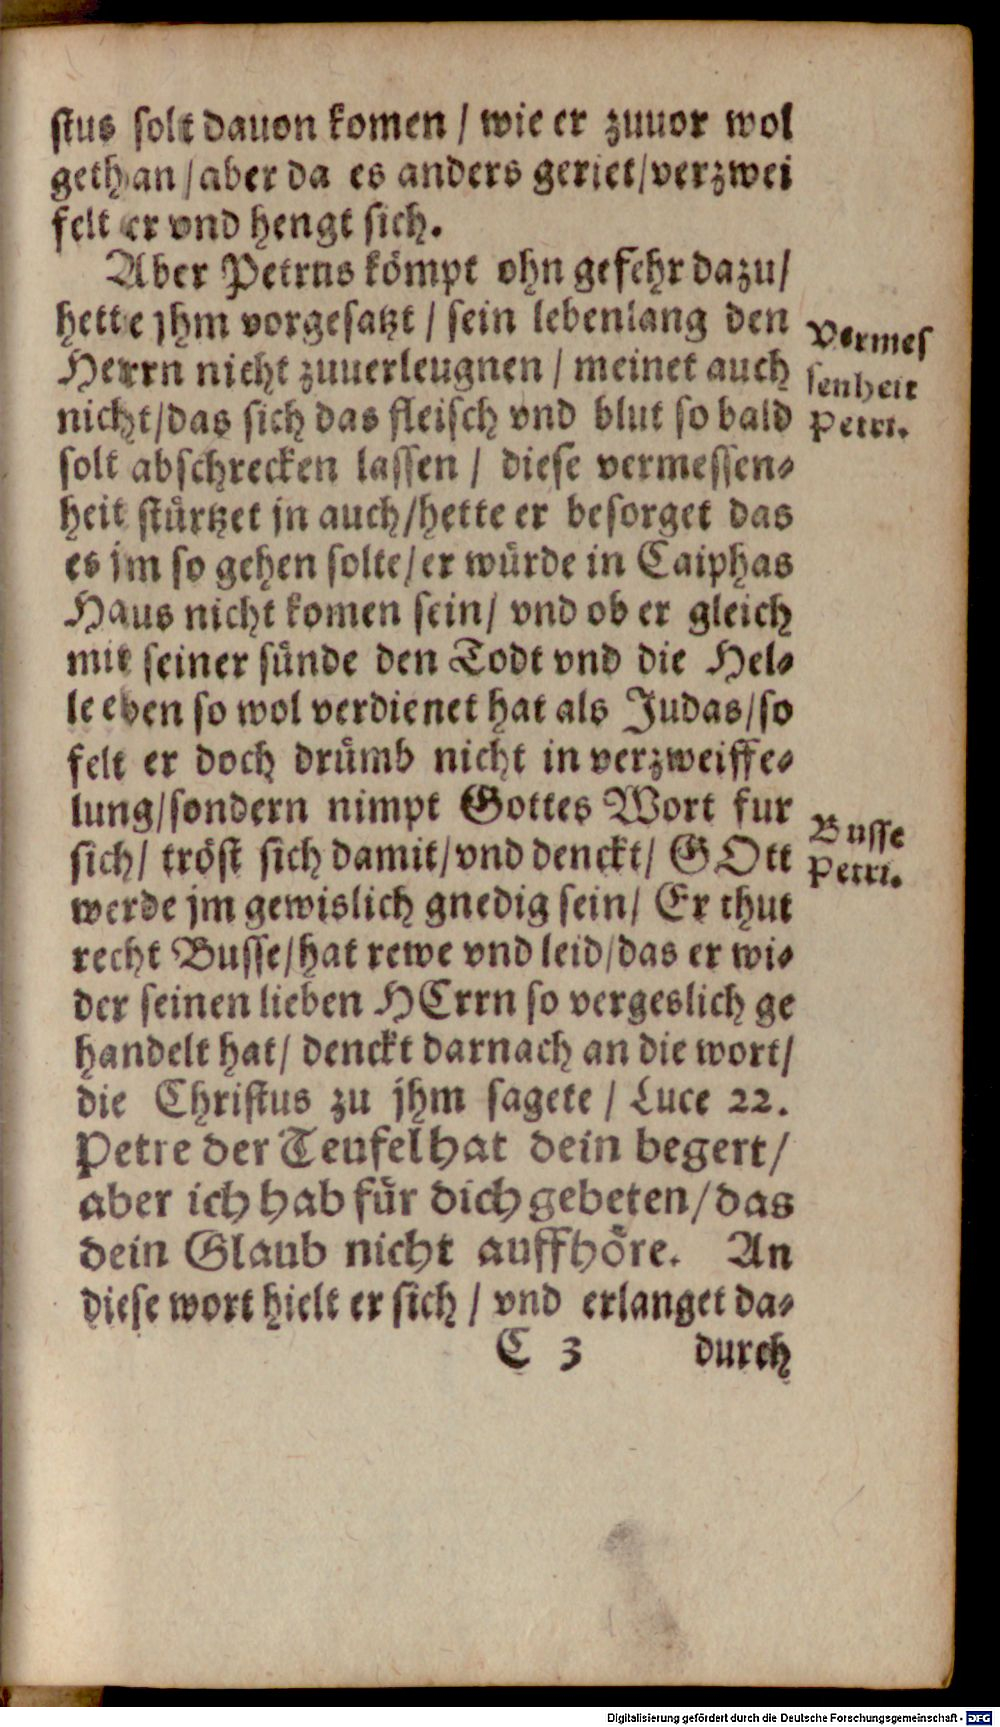 stus solt dauon komen / wie er zuuor wol
gethan / aber da es anders geriet / verzwei
felt er vnd hengt sich.
Aber Petrns kömpt ohn gefehr dazu /
hette jhm vorgesatzt / sein lebenlang den
Herrn nicht zuuerleugnen / meinet auch
nicht / das sich das fleisch vnd blut so bald
solt abschrecken lassen / diese vermessen-
heit stürtzet jn auch / hette er besorget das
es jm so gehen solte / er würde in Caiphas
Haus nicht komen sein / vnd ob er gleich
mit seiner sünde den Todt vnd die Hel-
le eben so wol verdienet hat als Judas / so
felt er doch drümb nicht in verzweiffe-
lung / sondern nimpt Gottes Wort fur
sich / tröst sich damit / vnd denckt / GOtt
werde jm gewislich gnedig sein / Er thut
recht Busse / hat rewe vnd leid / das er wi-
der seinen lieben HErrn so vergeslich ge
handelt hat / denckt darnach an die wort /
die Christus zu jhm sagete / Luce 22.
Petre der Teufel hat dein begert /
aber ich hab für dich gebeten / das
dein Glaub nicht auffhöre. An
diese wort hielt er sich / vnd erlanget da-
C 3 durch
Vermes
senheit
Petri.
Busse
Petri.
Digitalisierung gefördert durch die Deutsche Forschungsgemeinschaft - DFG